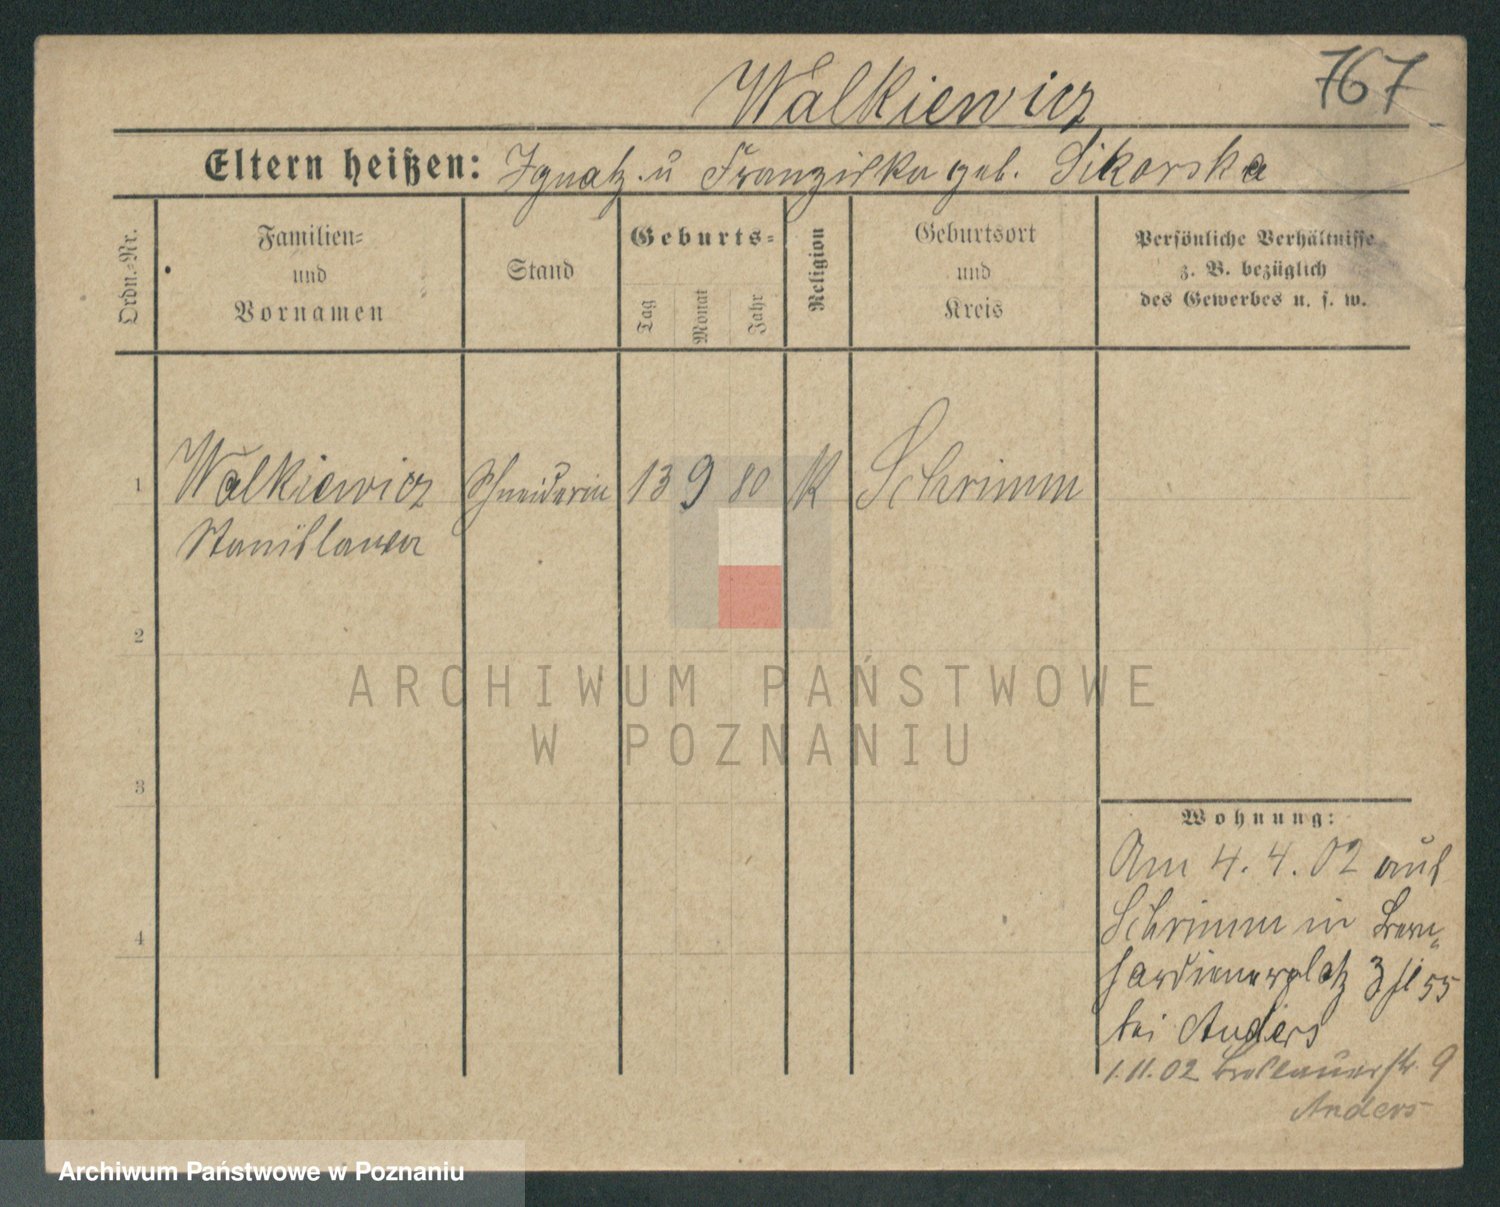 Walkiewicz
767
Eltern heißen: Ignatz u Franziska geb. Sikorska
Ordn.-Nr.
Familien-
und
Vornamen
Stand
Geburts-
Tag
Monat
Jahr
Religion
Geburtsort
und
Kreis
Persönliche Verhältnisse
z. B. bezüglich
des Gewerbes u. s. w.
1 Walkiewicz Schneiderin 13 9 80 K Schrimm
Stanislawa
2
3
4
Wohnung:
Am 4.4.02 aus
Schrimm in Bern-
hardinerplatz 3 55
bei Anders
1.11.02 9
Anders
ARCHIWUM PAŃSTWOWE
W POZNANIU
Archiwum Państwowe w Poznaniu